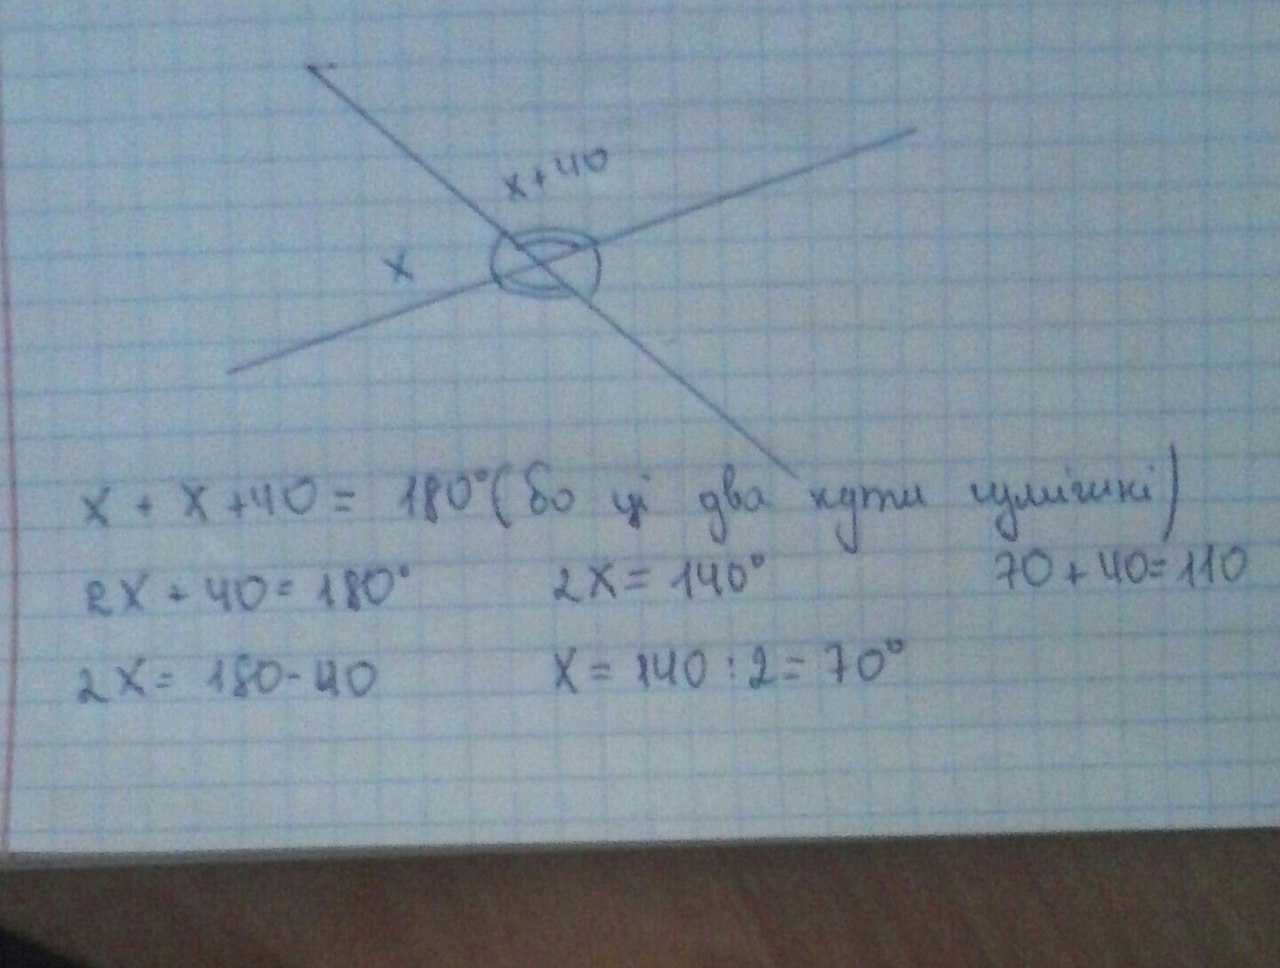 x + 40
x
x + x + 40 = 180° (бо ці два кути суміжні)
2x + 40 = 180° 2x = 140° 70 + 40 = 110
2x = 180 - 40 x = 140 : 2 = 70°